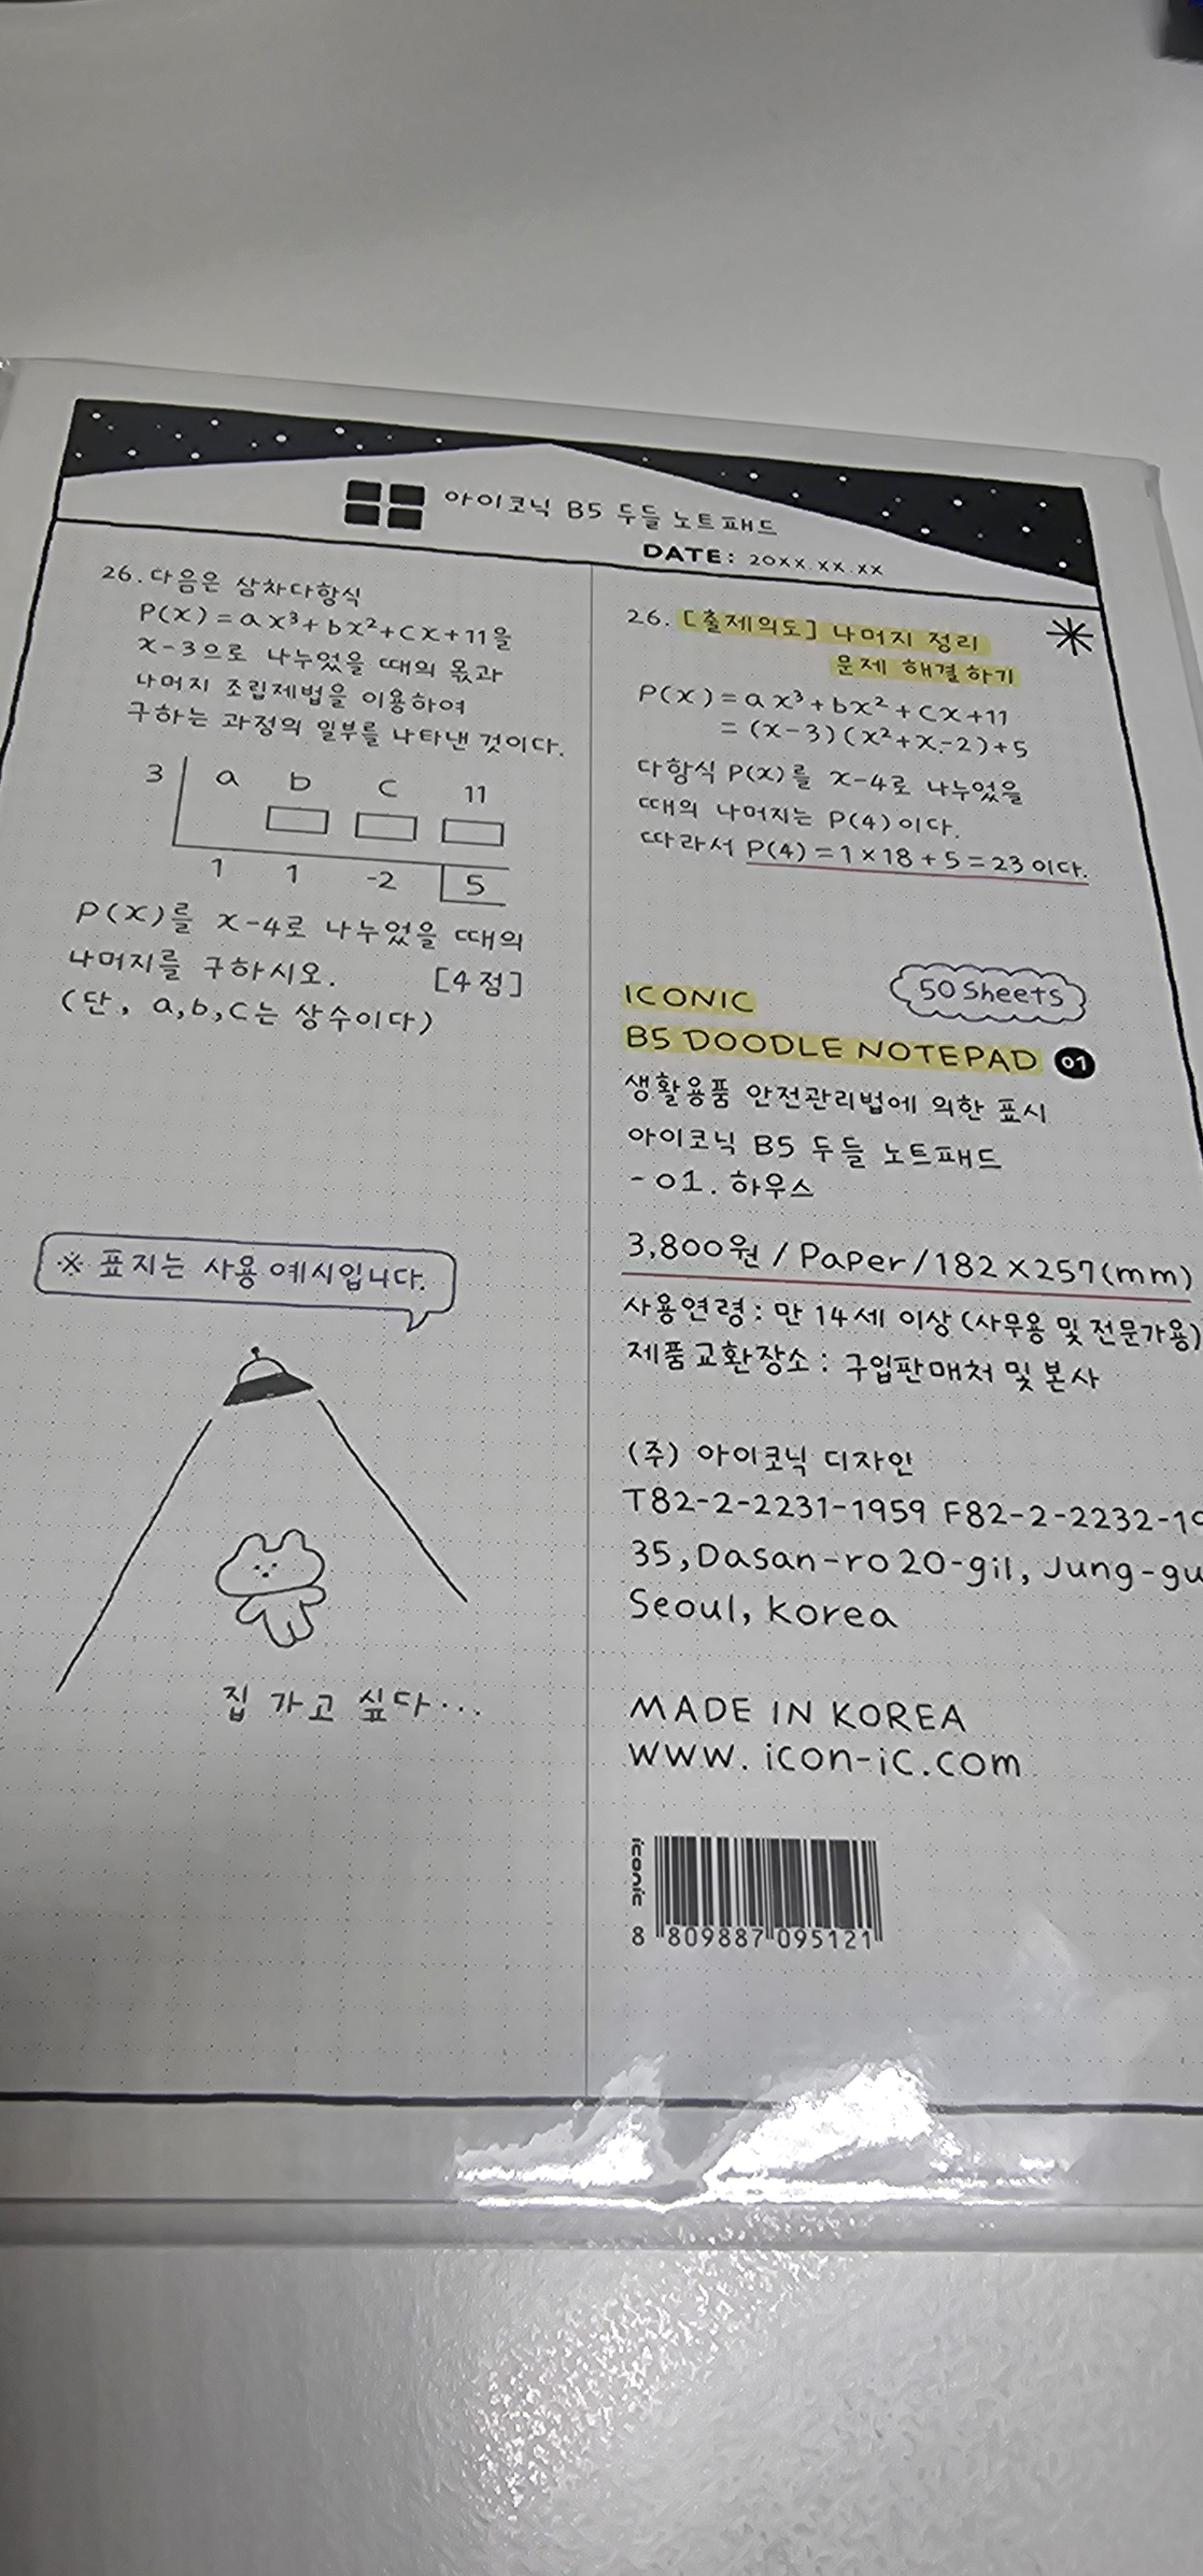 아이코닉 B5 두들 노트패드
DATE: 20XX.XX.XX
26. 다음은 삼차다항식
P(x)=ax³+bx²+cx+11을
x-3으로 나누었을 때의 몫과
나머지 조립제법을 이용하여
구하는 과정의 일부를 나타낸 것이다.
3 a b c 11
1 1 -2 5
P(x)를 x-4로 나누었을 때의
나머지를 구하시오. [4점]
(단, a,b,c는 상수이다)
※ 표지는 사용 예시입니다.
집 가고 싶다...
26. [출제의도] 나머지 정리
문제 해결하기
P(x)=ax³+bx²+cx+11
=(x-3)(x²+x-2)+5
다항식 P(x)를 x-4로 나누었을
때의 나머지는 P(4)이다.
따라서 P(4)=1×18+5=23이다.
50 Sheets
ICONIC
B5 DOODLE NOTEPAD 01
생활용품 안전관리법에 의한 표시
아이코닉 B5 두들 노트패드
-01. 하우스
3,800원 / Paper / 182×257(mm)
사용연령 : 만 14세 이상 (사무용 및 전문가용)
제품교환장소 : 구입판매처 및 본사
(주) 아이코닉 디자인
T82-2-2231-1959 F82-2-2232-19
35, Dasan-ro 20-gil, Jung-gu
Seoul, Korea
MADE IN KOREA
www.icon-ic.com
iconic
8 809887 095121